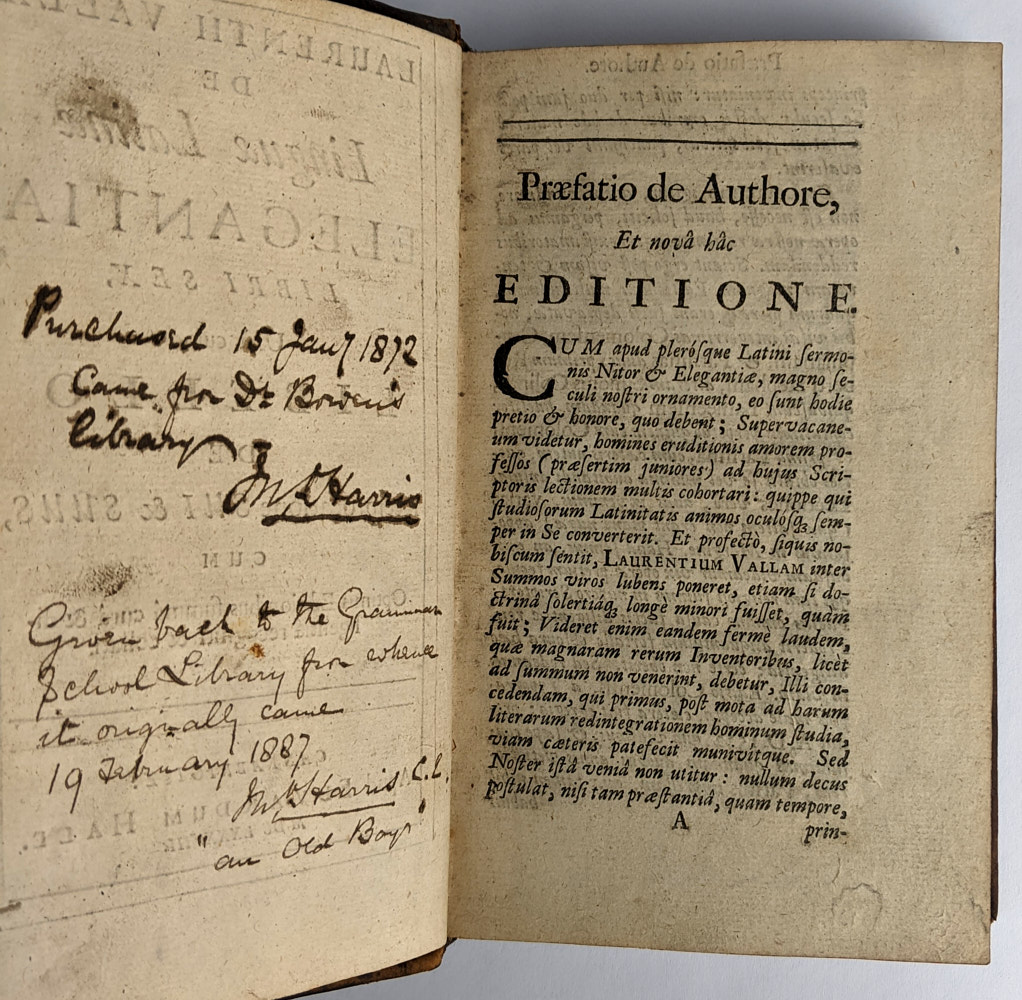 Purchased 15 Jany 1872
Came from Dr Bowen's
library
Harris
Given back to the Grammar
School Library from whence
it originally came
19 February 1887
Harris C.E.
"an Old Boy"
LAURENTII VALLÆ
DE
Linguæ Latinæ
ELEGANTIA
LIBRI SEX,
DE
CUM
Præfatio de Authore.
Præfatio de Authore,
Et novâ hâc
EDITIONE.
CUM apud plerósque Latini ſermo-
nis Nitor & Elegantiæ, magno ſe-
culi noſtri ornamento, eo ſunt hodie
pretio & honore, quo debent; Supervacane-
um videtur, homines eruditionis amorem pro-
feſſos (præſertim juniores) ad hujus Scri-
ptoris lectionem multis cohortari: quippe qui
ſtudioſorum Latinitatis animos oculóſq; ſem-
per in Se converterit. Et profectò, ſiquis no-
biſcum ſentit, LAURENTIUM VALLAM inter
Summos viros lubens poneret, etiam ſi do-
ctrinâ ſolertiáq; longè minori fuiſſet, quàm
fuit; Videret enim eandem fermè laudem,
quæ magnarum rerum Inventoribus, licèt
ad ſummum non venerint, debetur, Illi con-
cedendam, qui primus, poſt mota ad harum
literarum redintegrationem hominum ſtudia,
viam cæteris patefecit munivítque. Sed
Noſter iſtâ veniâ non utitur: nullum decus
poſtulat, niſi tam præſtantiâ, quam tempore,
A
prin-